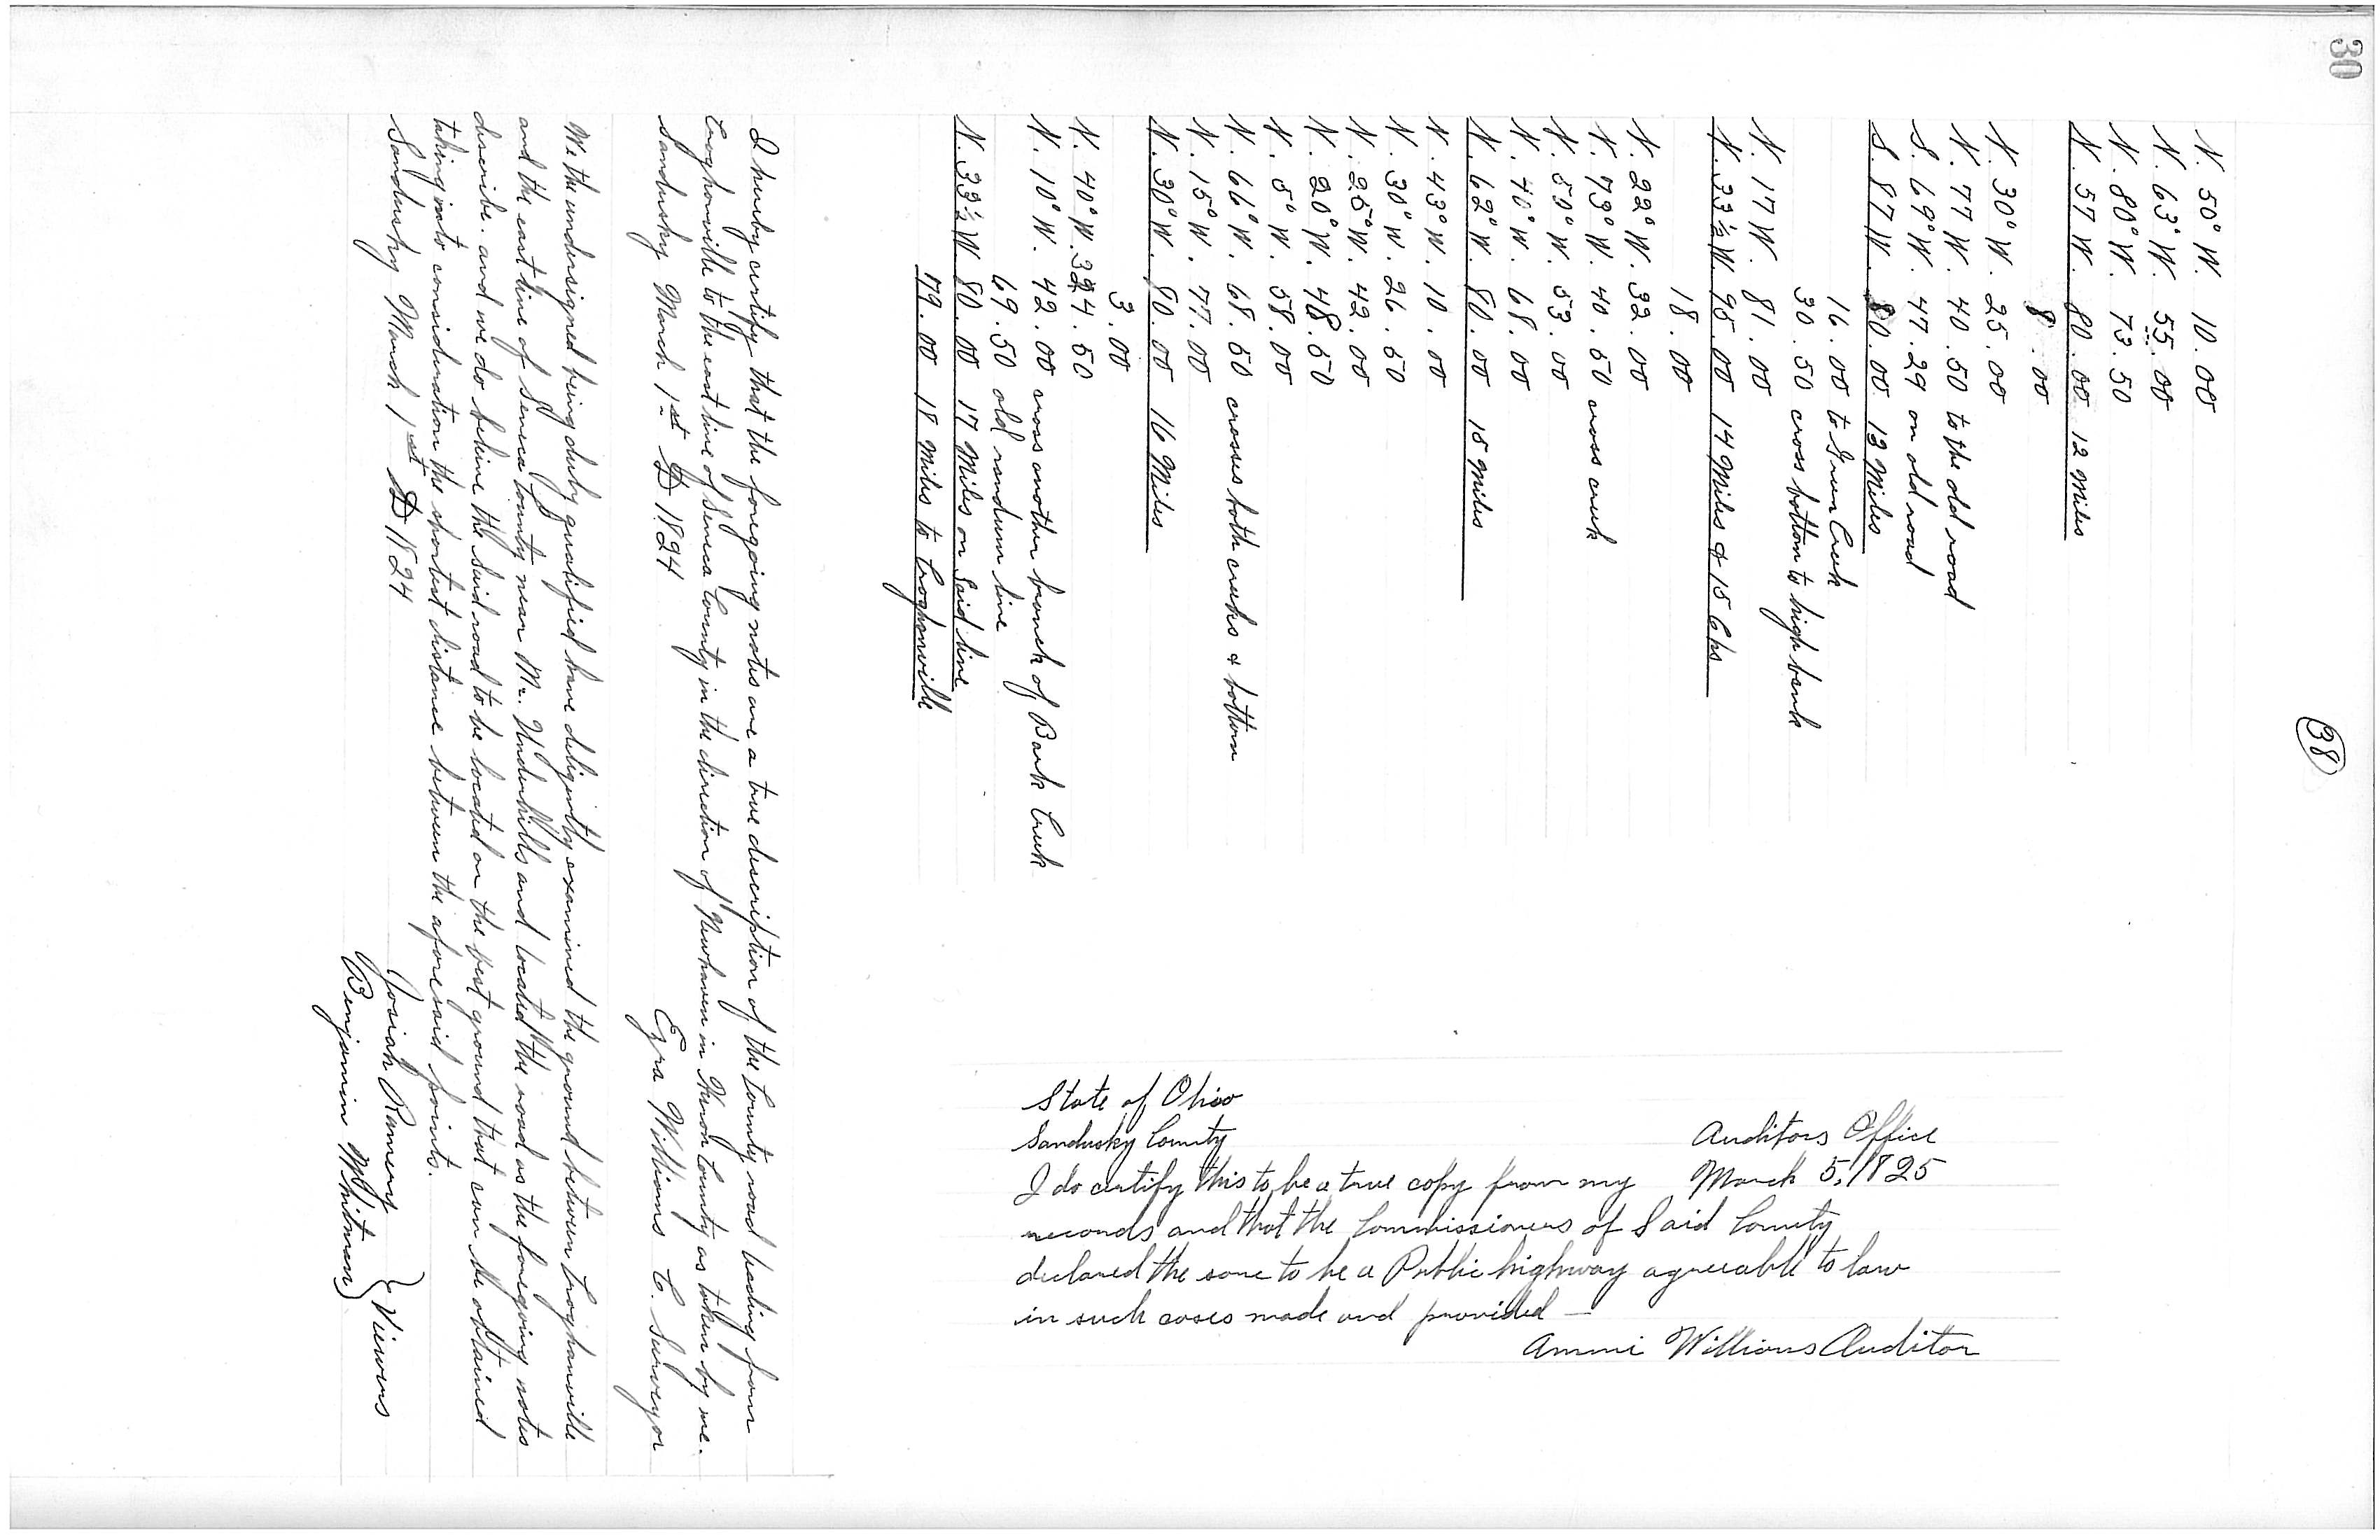 30
38
N. 50° W. 10.00
N. 63° W. 55.00
N. 80° W. 73.50
N. 57 W. 80.00 12 Miles
8.00
N. 30° W. 25.00
N. 77 W. 40.50 to the old road
S. 69° W. 47.29 on old road
S. 87 W. 80.00 13 Miles
16.00 to Green Creek
30.50 cross bottom to high bank
N. 17 W. 81.00
N. 33½ W. 95.00 14 Miles & 15 Chs
18.00
N. 22° W. 32.00
N. 73° W. 40.50 cross creek
N. 50° W. 53.00
N. 40° W. 68.00
N. 62° W. 80.00 15 Miles
N. 43° W. 10.00
N. 30° W. 26.50
N. 25° W. 42.00
N. 20° W. 48.50
N. 5° W. 58.00
N. 66° W. 68.50 crosses both creeks & bottom
N. 15° W. 77.00
N. 30° W. 80.00 16 Miles
3.00
N. 40° W. 34.50
N. 10° W. 42.00 cross another branch of Bark Creek
69.50 old randum line
N. 33½ W 80.00 17 Miles on Said line
79.00 18 Miles to Croghanville
I hereby certify that the foregoing notes are a true discription of the County road leading from
Croghanville to the east line of Seneca County in the direction of Newhaven in Huron County as taken by me.
Sandusky March 1st AD 1824
Ezra Williams C. Surveyor
We the undersigned being duly qualified have diligently examined the ground between Croghanville
and the east line of Seneca County near Mr. Underhills and located the road as the foregoing notes
discribe. and we do believe the said road to be located on the best ground that can be obtained
taking into consideration the shortest distance between the aforesaid points.
Sandusky March 1st AD 1824
Josiah Ramery } Viewers
Benjamin Whitman }
State of Ohio
Sandusky County
Auditors Office
March 5, 1825
I do certify this to be a true copy from my
records and that the Commissioners of Said County
declared the same to be a Public highway agreeable to law
in such cases made and provided —
Ammi Williams Auditor